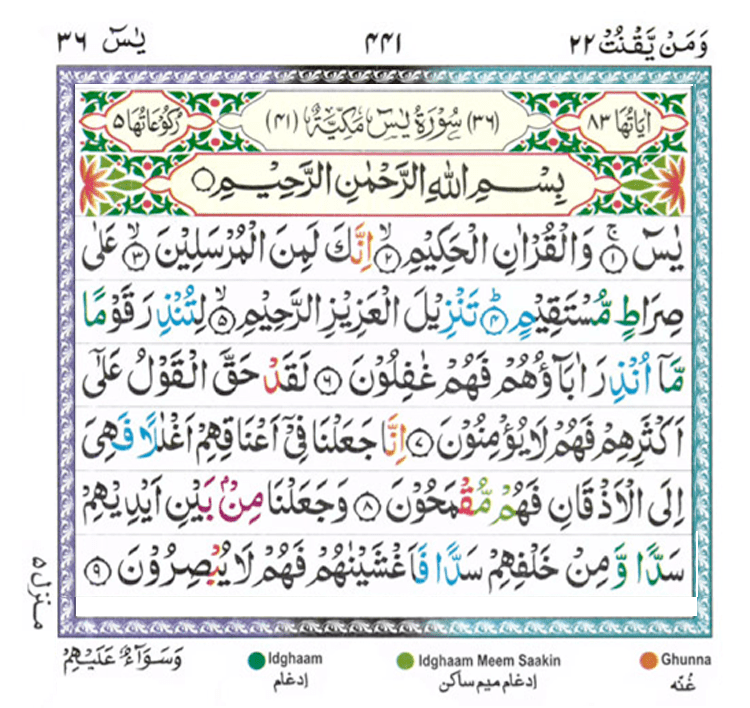 وَمَنْ يَّقْنُتْ ٢٢ ٤٤١ يٰسٓ ٣٦
اٰيَاتُهَا ٨٣ (٣٦) سُوْرَةُ يٰسٓ مَكِّيَّةٌ (٤١) رُكُوْعَاتُهَا ٥
بِسْمِ اللّٰهِ الرَّحْمٰنِ الرَّحِيْمِ
يٰسٓ ۚ ﴿١﴾ وَالْقُرْاٰنِ الْحَكِيْمِ ۙ ﴿٢﴾ اِنَّكَ لَمِنَ الْمُرْسَلِيْنَ ۙ ﴿٣﴾ عَلٰى
صِرَاطٍ مُّسْتَقِيْمٍ ؕ ﴿٤﴾ تَنْزِيْلَ الْعَزِيْزِ الرَّحِيْمِ ۙ ﴿٥﴾ لِتُنْذِرَ قَوْمًا
مَّاۤ اُنْذِرَ اٰبَآؤُهُمْ فَهُمْ غٰفِلُوْنَ ﴿٦﴾ لَقَدْ حَقَّ الْقَوْلُ عَلٰٓى
اَكْثَرِهِمْ فَهُمْ لَا يُؤْمِنُوْنَ ﴿٧﴾ اِنَّا جَعَلْنَا فِيْۤ اَعْنَاقِهِمْ اَغْلٰلًا فَهِىَ
اِلَى الْاَذْقَانِ فَهُمْ مُّقْمَحُوْنَ ﴿٨﴾ وَجَعَلْنَا مِنْۢ بَيْنِ اَيْدِيْهِمْ
سَدًّا وَّمِنْ خَلْفِهِمْ سَدًّا فَاَغْشَيْنٰهُمْ فَهُمْ لَا يُبْصِرُوْنَ ﴿٩﴾
منزل ٥
وَسَوَآءٌ عَلَيْهِمْ
Idghaam Idghaam Meem Saakin Ghunna
إدغام إدغام ميم ساكن غُنّه